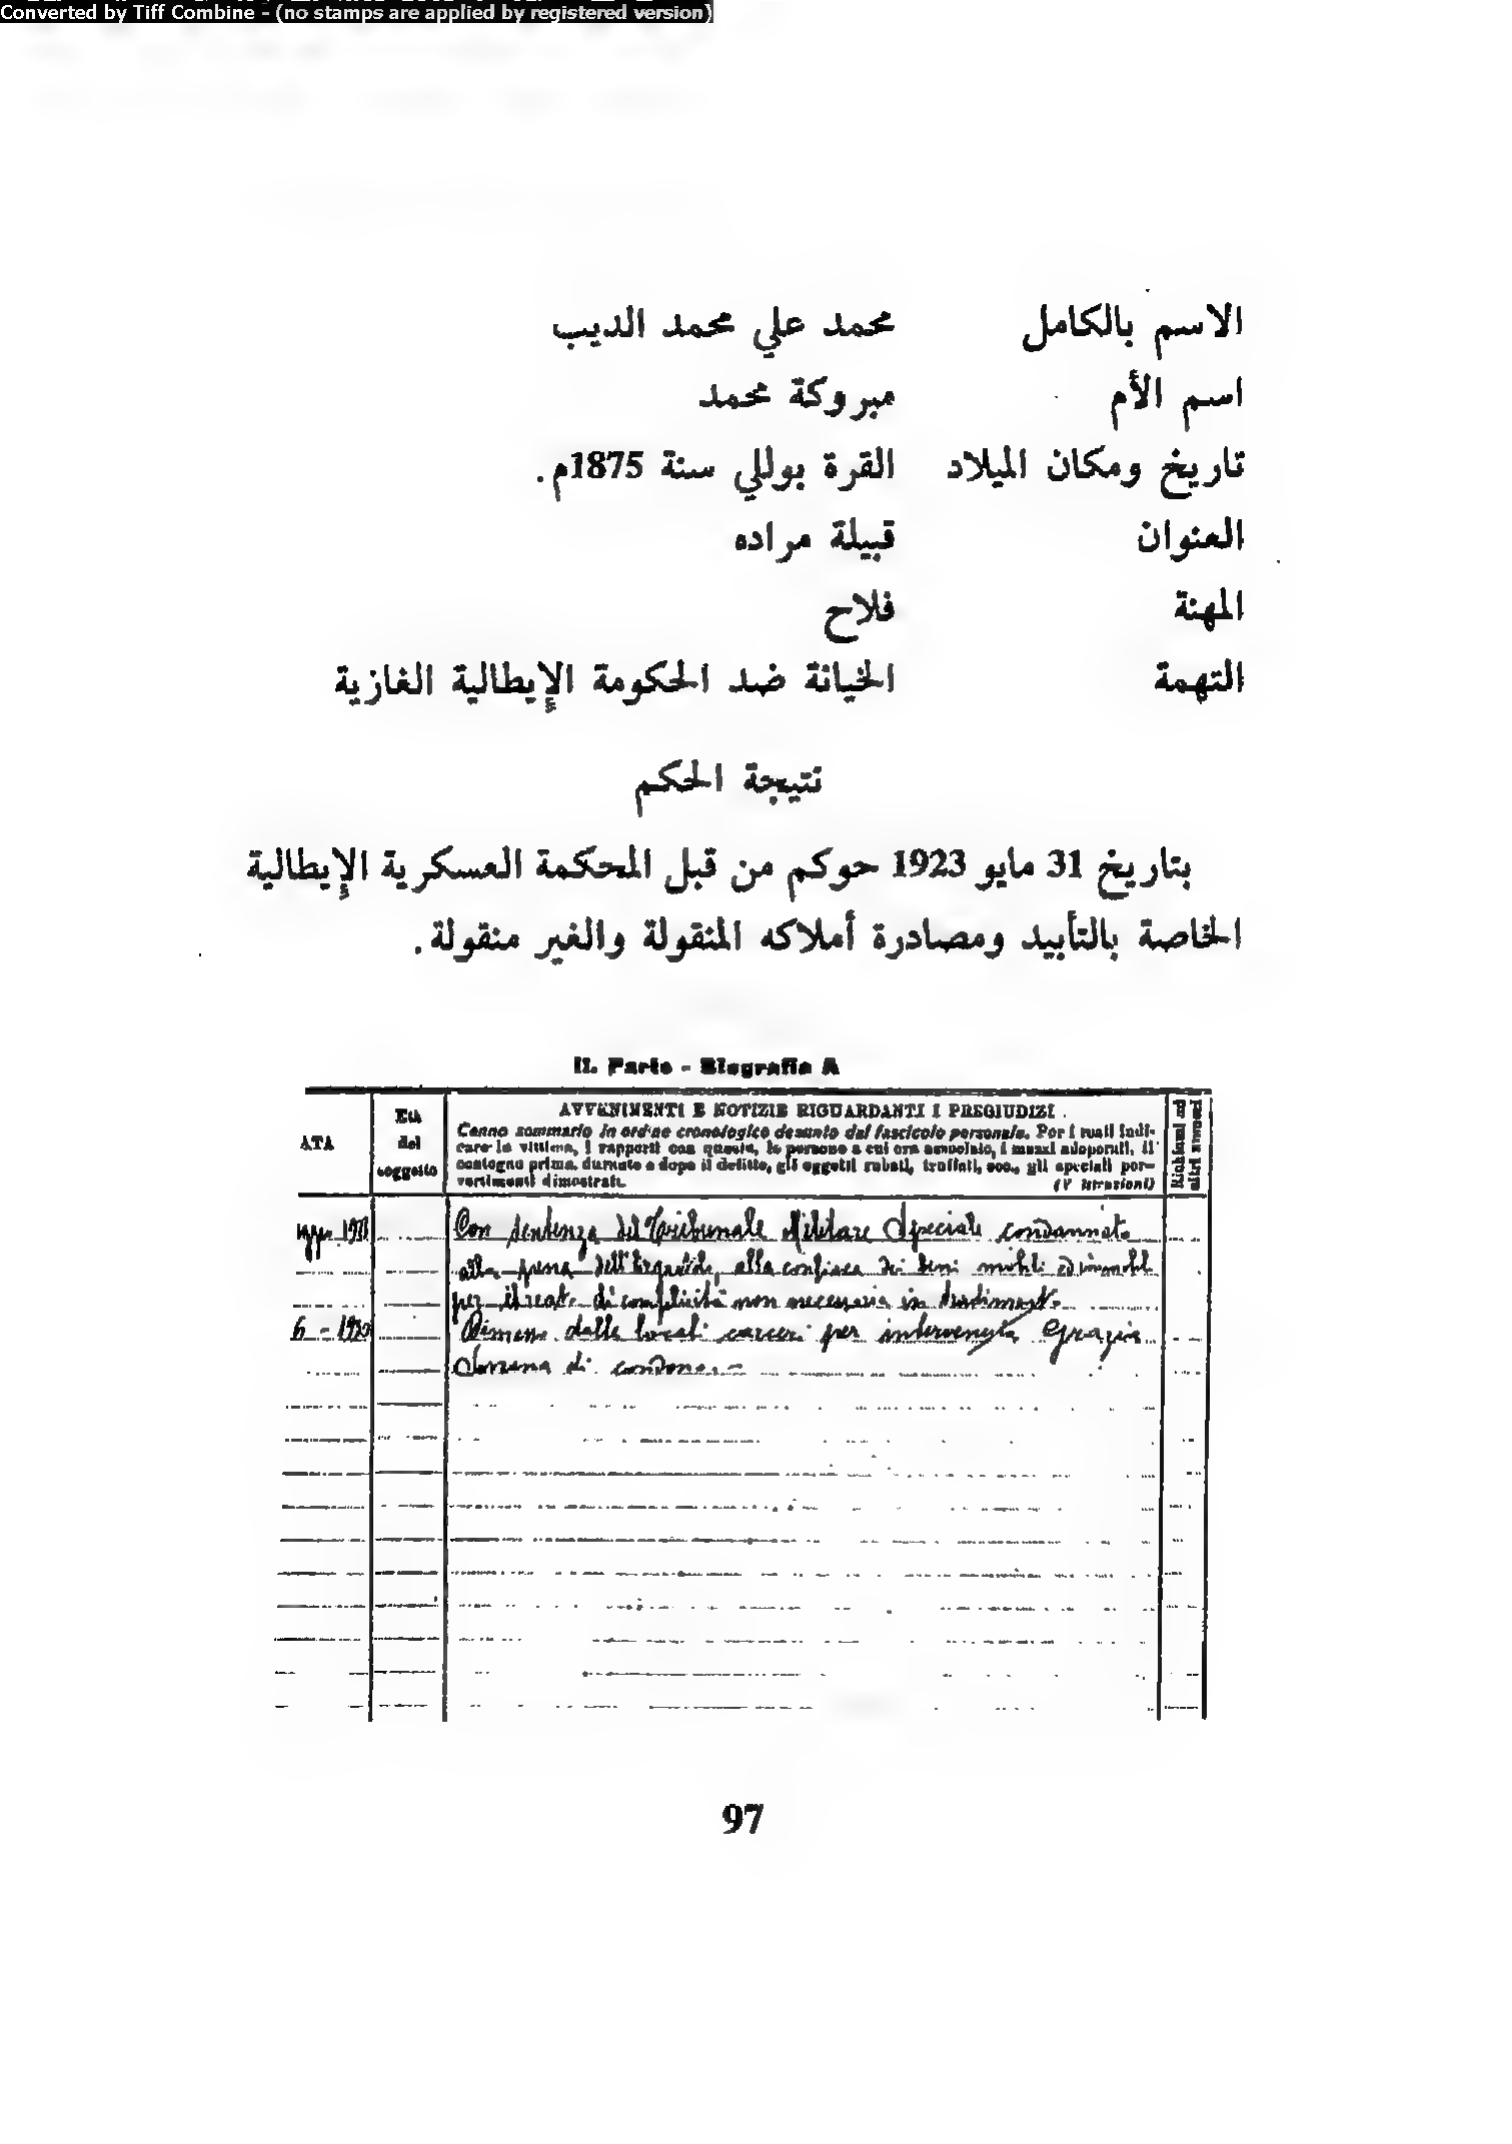 Converted by Tiff Combine - (no stamps are applied by registered version)
الاسم بالكامل محمد علي محمد الديب
اسم الأم مبروكة محمد
تاريخ ومكان الميلاد القرة بوللي سنة 1875م.
العنوان قبيلة مراده
المهنة فلاح
التهمة الخيانة ضد الحكومة الإيطالية الغازية
نتيجة الحكم
بتاريخ 31 مايو 1923 حوكم من قبل المحكمة العسكرية الإيطالية
الخاصة بالتأبيد ومصادرة أملاكه المنقولة والغير منقولة.
II. Parte - Biografia A
ATA
Età
del
soggetto
AVVENIMENTI E NOTIZIE RIGUARDANTI I PREGIUDIZI.
Cenno sommario in ordine cronologico desunto dal fascicolo personale. Per i quali indi-
care la vittima, i rapporti con questa, le persone a cui era associato, i mezzi adoperati, il
contegno prima, durante e dopo il delitto, gli oggetti rubati, truffati, ecc., gli speciali per-
vertimenti dimostrati. (V istruzioni)
Richiami ad
altri
Con sentenza del Tribunale Militare Speciale condannato
alla pena dell'ergastolo, alla confisca dei beni mobili ed immobili
per il reato di complicità non necessaria in tradimento.
6 -
Dimesso dalle locali carceri per intervenuta Grazia
Sovrana di condono. -
97